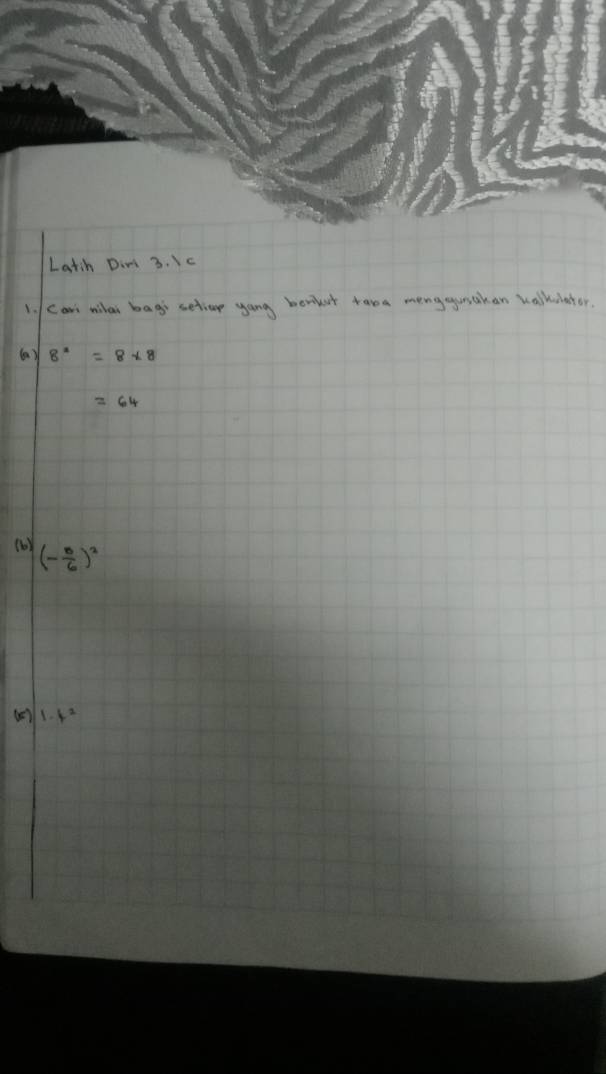 Latih Diri 3.1c
1. Cari nilai bagi setiap yang berikut tapa menggunakan kalkulator.
(a) 8² = 8 × 8
= 64
(b) (-5/6)²
(c) 1.4²